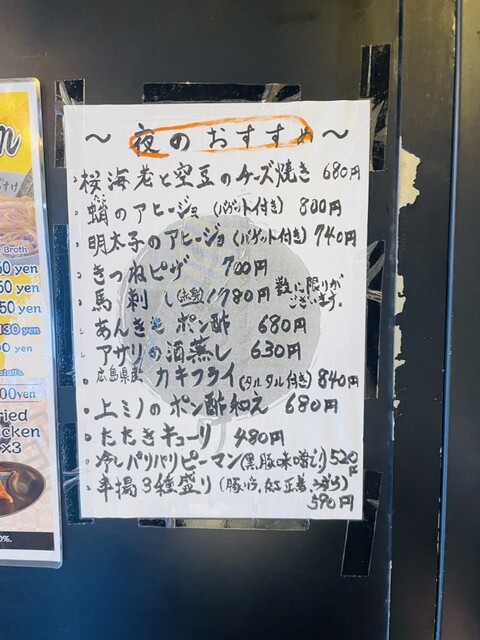 ～夜のおすすめ～
・桜海老と空豆のチーズ焼き 680円
・蛸のアヒージョ（バゲット付き）800円
・明太子のアヒージョ（バゲット付き）740円
・きつねピザ 700円
・馬刺し 1780円 数に限りがございます。
・あんきもポン酢 680円
・アサリの酒蒸し 630円
・広島県産カキフライ（タルタル付き）840円
・上ミノのポン酢和え 680円
・たたきキューリ 480円
・冷しパリパリピーマン（黒豚味噌で）520円
・串揚3種盛り（豚バラ、紅生姜、
590円
Broth
50 yen
50 yen
50 yen
130 yen
00 yen
00yen
ried
icken
×3
0%.